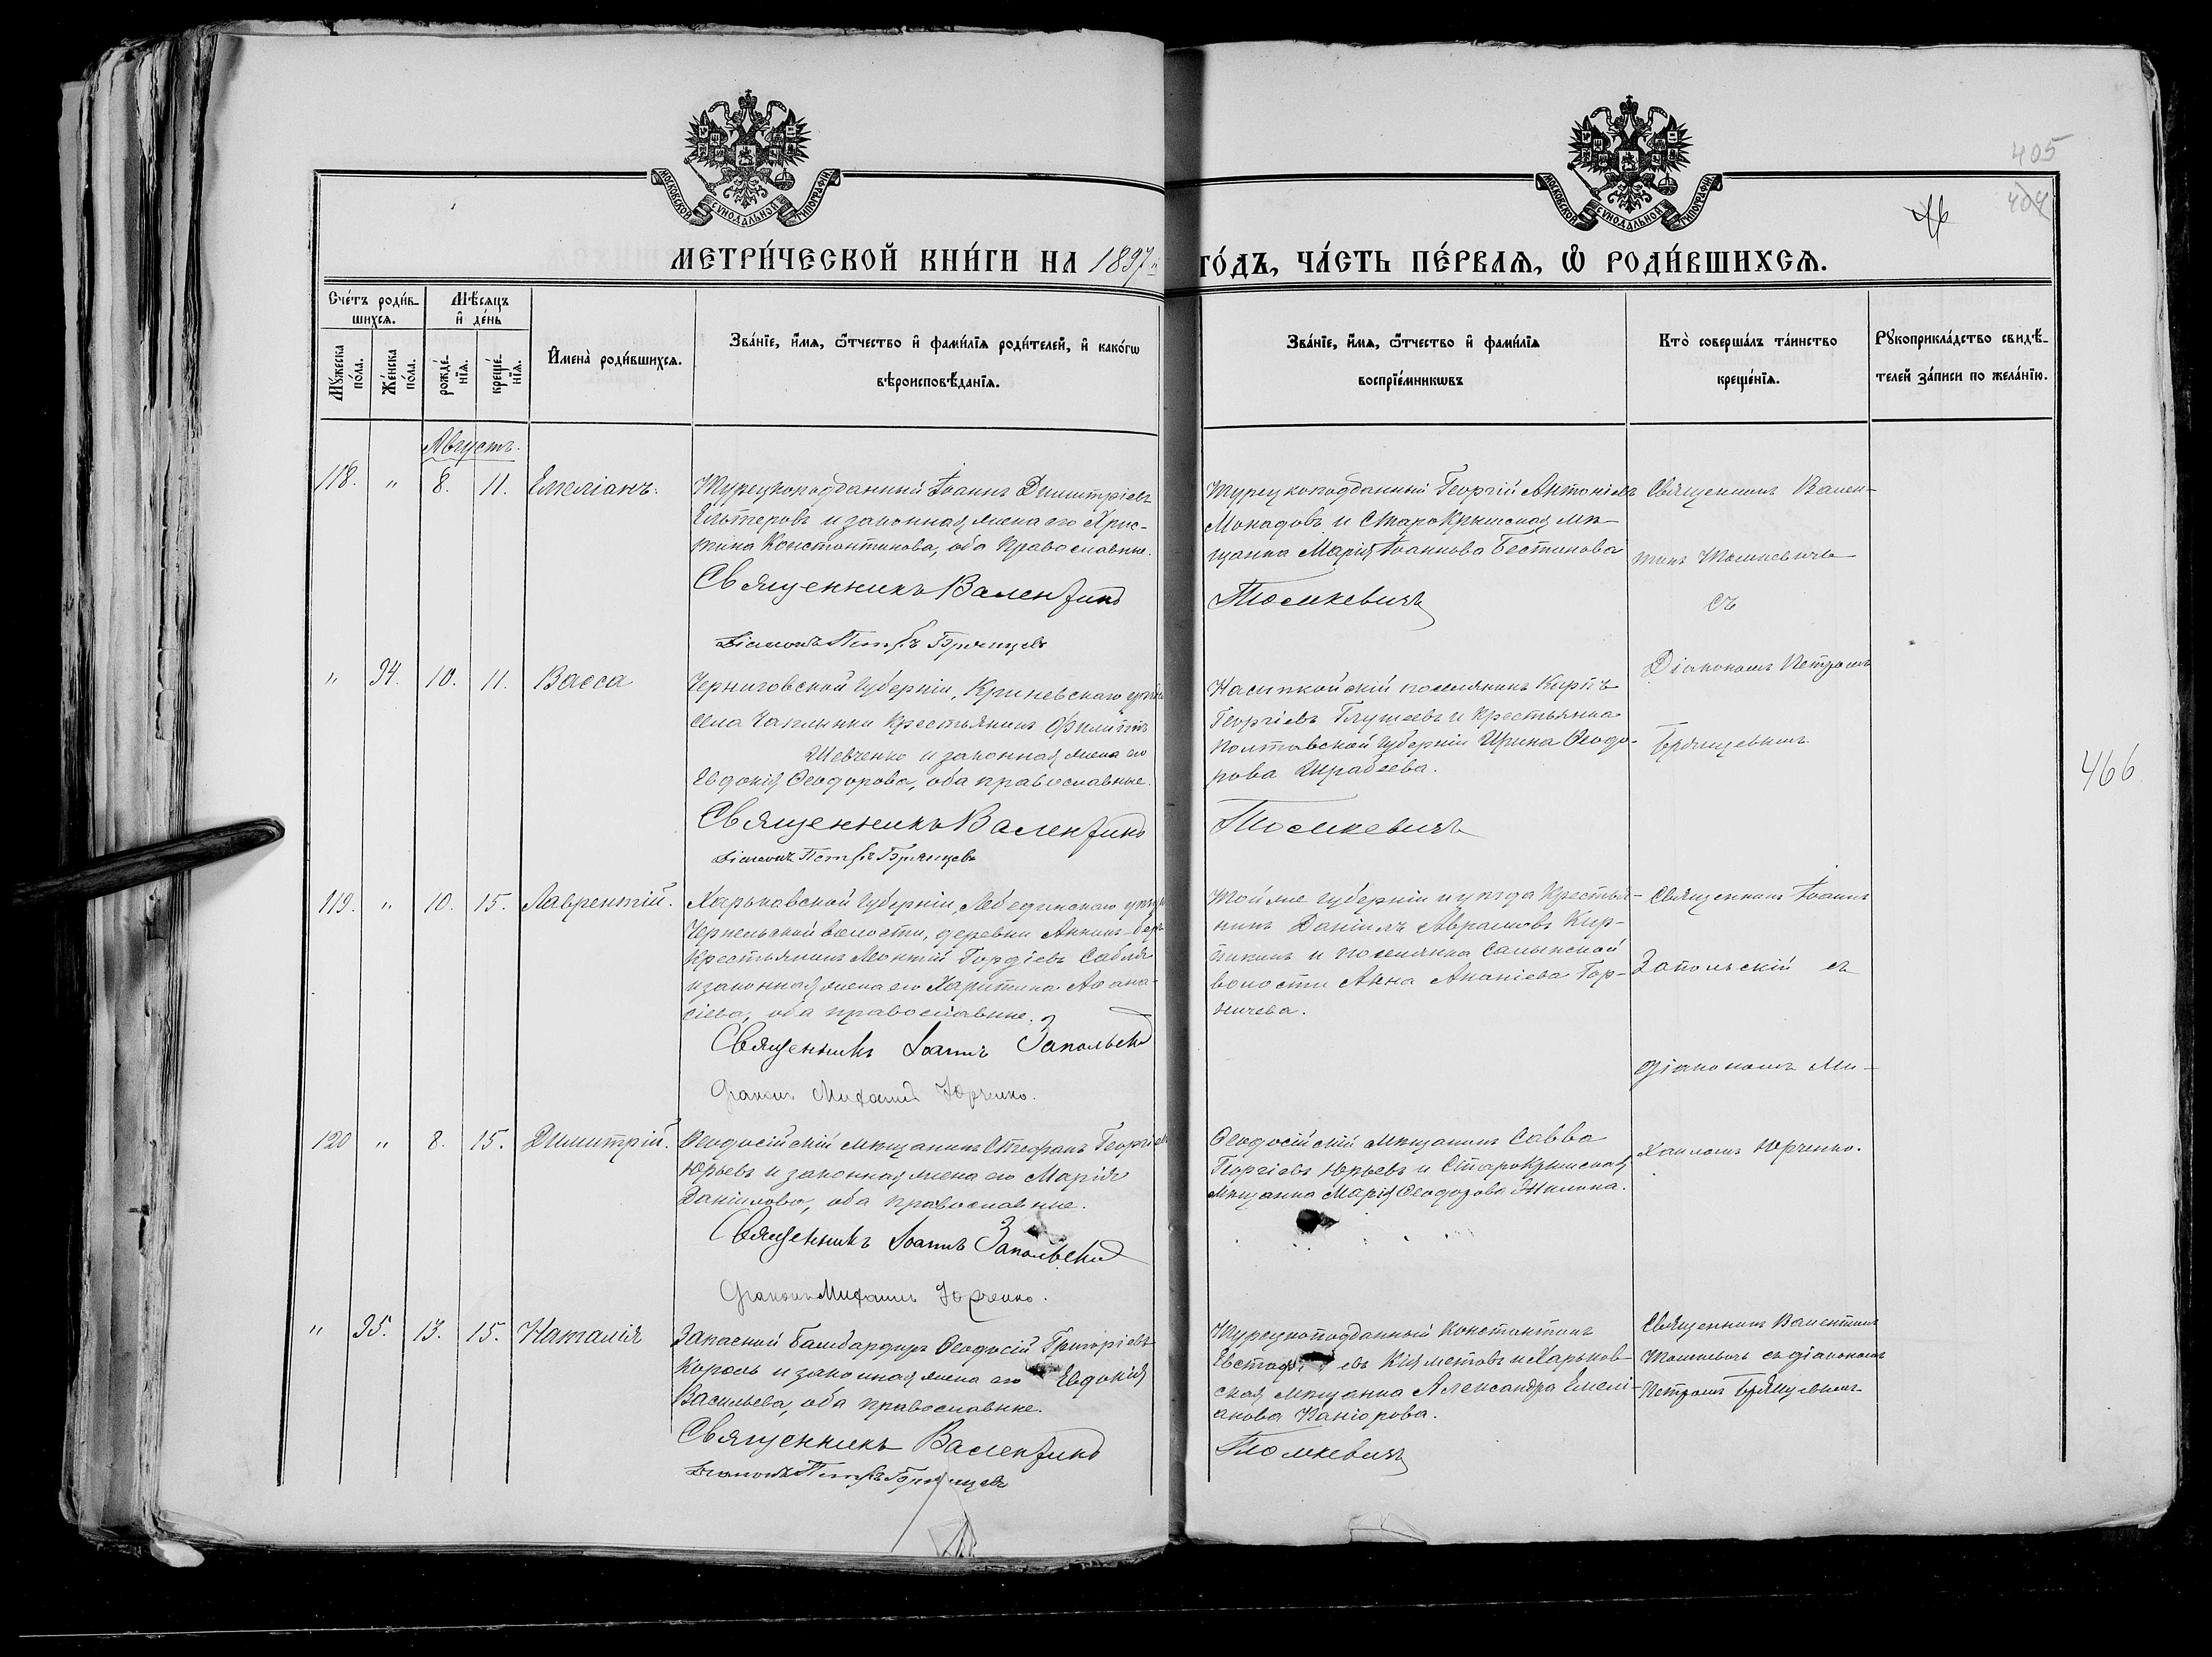 МОСКОВСКОЙ СѴНОДАЛЬНОЙ ТИПОГРАФІИ
МОСКОВСКОЙ СѴНОДАЛЬНОЙ ТИПОГРАФІИ
405
404
МЕТРИ́ЧЕСКОЙ КНИ́ГИ НА 1897 й ГО́ДЪ, ЧА́СТЬ ПЕ́РВАѦ, Ѡ҆ РОДИ́ВШИХСѦ.
Сче́тъ роди́в-
шихсѧ.
Мѣ́сѧцъ
и҆ де́нь
Мꙋ́жеска по́ла.
Же́нска по́ла.
рожде́-
нїѧ.
креще́-
нїѧ.
И҆мена̀ роди́вшихсѧ.
Зва́нїе, и҆́мѧ, ѻ҆́тчество и҆ фами́лїѧ роди́телей, и҆ како́гѡ
вѣроисповѣ́данїѧ.
Зва́нїе, и҆́мѧ, ѻ҆́тчество и҆ фами́лїѧ
воспрїе́мникѡвъ
Кто̀ соверша́лъ та́инство
креще́нїѧ.
Рꙋкоприкла́дство свидѣ́-
телей за́писи по жела́нїю.
Августъ.
118. " 8. 11. Емеліанъ.
Турецкоподданный Іоаннъ Димитріевъ
Ельтеровъ и законная жена его Хрис-
тина Константинова, оба православные.
Священникъ Валентинъ
Діаконъ Петръ Брянцевъ
Турецкоподданный Георгій Антоніевъ
Монадовъ и Старокрымская мѣ-
щанка Марія Іоаннова Бестанова
Томкевичъ
Священникъ Вален-
тинъ Томкевичъ
съ
Діакономъ Петромъ
Брянцевымъ
" 94. 10. 11. Васса
Черниговской губерніи,
села Чаплынки крестьянинъ Филиппъ
Шевченко и законная жена его
Евдокія Ѳеодорова, оба православные.
Священникъ Валентинъ
Діаконъ Петръ Брянцевъ
Насыпкойскій поселянинъ
Георгіевъ и крестьянка
Полтавской губерніи Ирина Ѳеодо-
рова
Томкевичъ
466
119. " 10. 15. Лаврентій.
Харьковской губерніи, Лебединскаго уѣзда
волости, деревни
крестьянинъ Леонтій Гордіевъ Сабля
и законная жена его Харитина Аѳана-
сіева, оба православные.
Священникъ Іоаннъ Запольскій
Діаконъ Михаилъ Юрченко.
Той же губерніи и уѣзда крестья-
нинъ Даніилъ Аврамовъ Кир-
и поселянка
волости Анна Ананіева Гор-
Священникъ Іоаннъ
Запольскій съ
діакономъ Ми-
хаиломъ Юрченко.
120 " 8. 15. Димитрій.
Ѳеодосійскій мѣщанинъ Стефанъ Георгіевъ
Юрьевъ и законная жена его Марія
Даніилова, оба православные.
Священникъ Іоаннъ Запольскій
Діаконъ Михаилъ Юрченко.
Ѳеодосійскій мѣщанинъ Савва
Георгіевъ Юрьевъ и Старокрымская
мѣщанка Марія Ѳеодорова Жилина.
" 95. 13. 15. Наталія
Запасной бамбардиръ Ѳеодосій Григоріевъ
Король и законная жена его Евдокія
Васильева, оба православные.
Священникъ Валентинъ
Діаконъ Петръ Брянцевъ
Турецкоподданный Константинъ
Кіяметовъ и Харьков-
ская мѣщанка Александра Емелі-
анова
Томкевичъ
Священникъ Валентинъ
Томкевичъ съ діакономъ
Петромъ Брянцевымъ